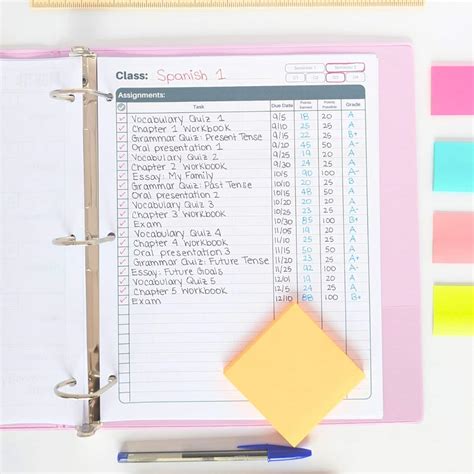 Class: Spanish 1
Semester 1 Semester 2
Assignments:
Task Due Date Points Earned Points Possible Grade
Vocabulary Quiz 1 9/5 18 20 A
Chapter 1 Workbook 9/10 25 25 A
Grammar Quiz: Present Tense 9/15 22 25
Oral presentation 1 45 50 A
Vocabulary Quiz 2 20 A
Chapter 2 Workbook 9/30 24 25 A
Essay: My Family 10/5 90 100
Grammar Quiz: Past Tense 10/10 25
Oral presentation 2 10/15 48 50 A
Vocabulary Quiz 3 20
Chapter 3 Workbook 25
Exam 10/30 100
Vocabulary Quiz 4 20
Chapter 4 Workbook 25
Oral presentation 3 50
Grammar Quiz: Future Tense 25
Essay: Future Goals 100
Vocabulary Quiz 5 12/01 19 20 A
Chapter 5 Workbook 12/5 24 25 A
Exam 12/10 88 100 B+